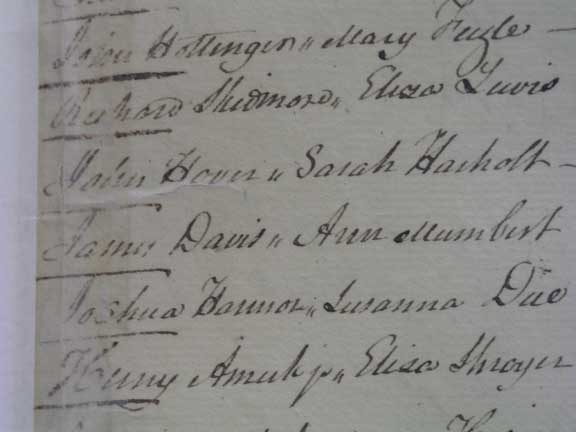 John Hottinger " Mary Fugle
Richard Skidmore " Eliza Lewis
John Hover " Sarah Harholt
James Davis " Ann Mumbert
Joshua Hannor " Susanna Due
Henry Amick jr " Eliza Shroyer